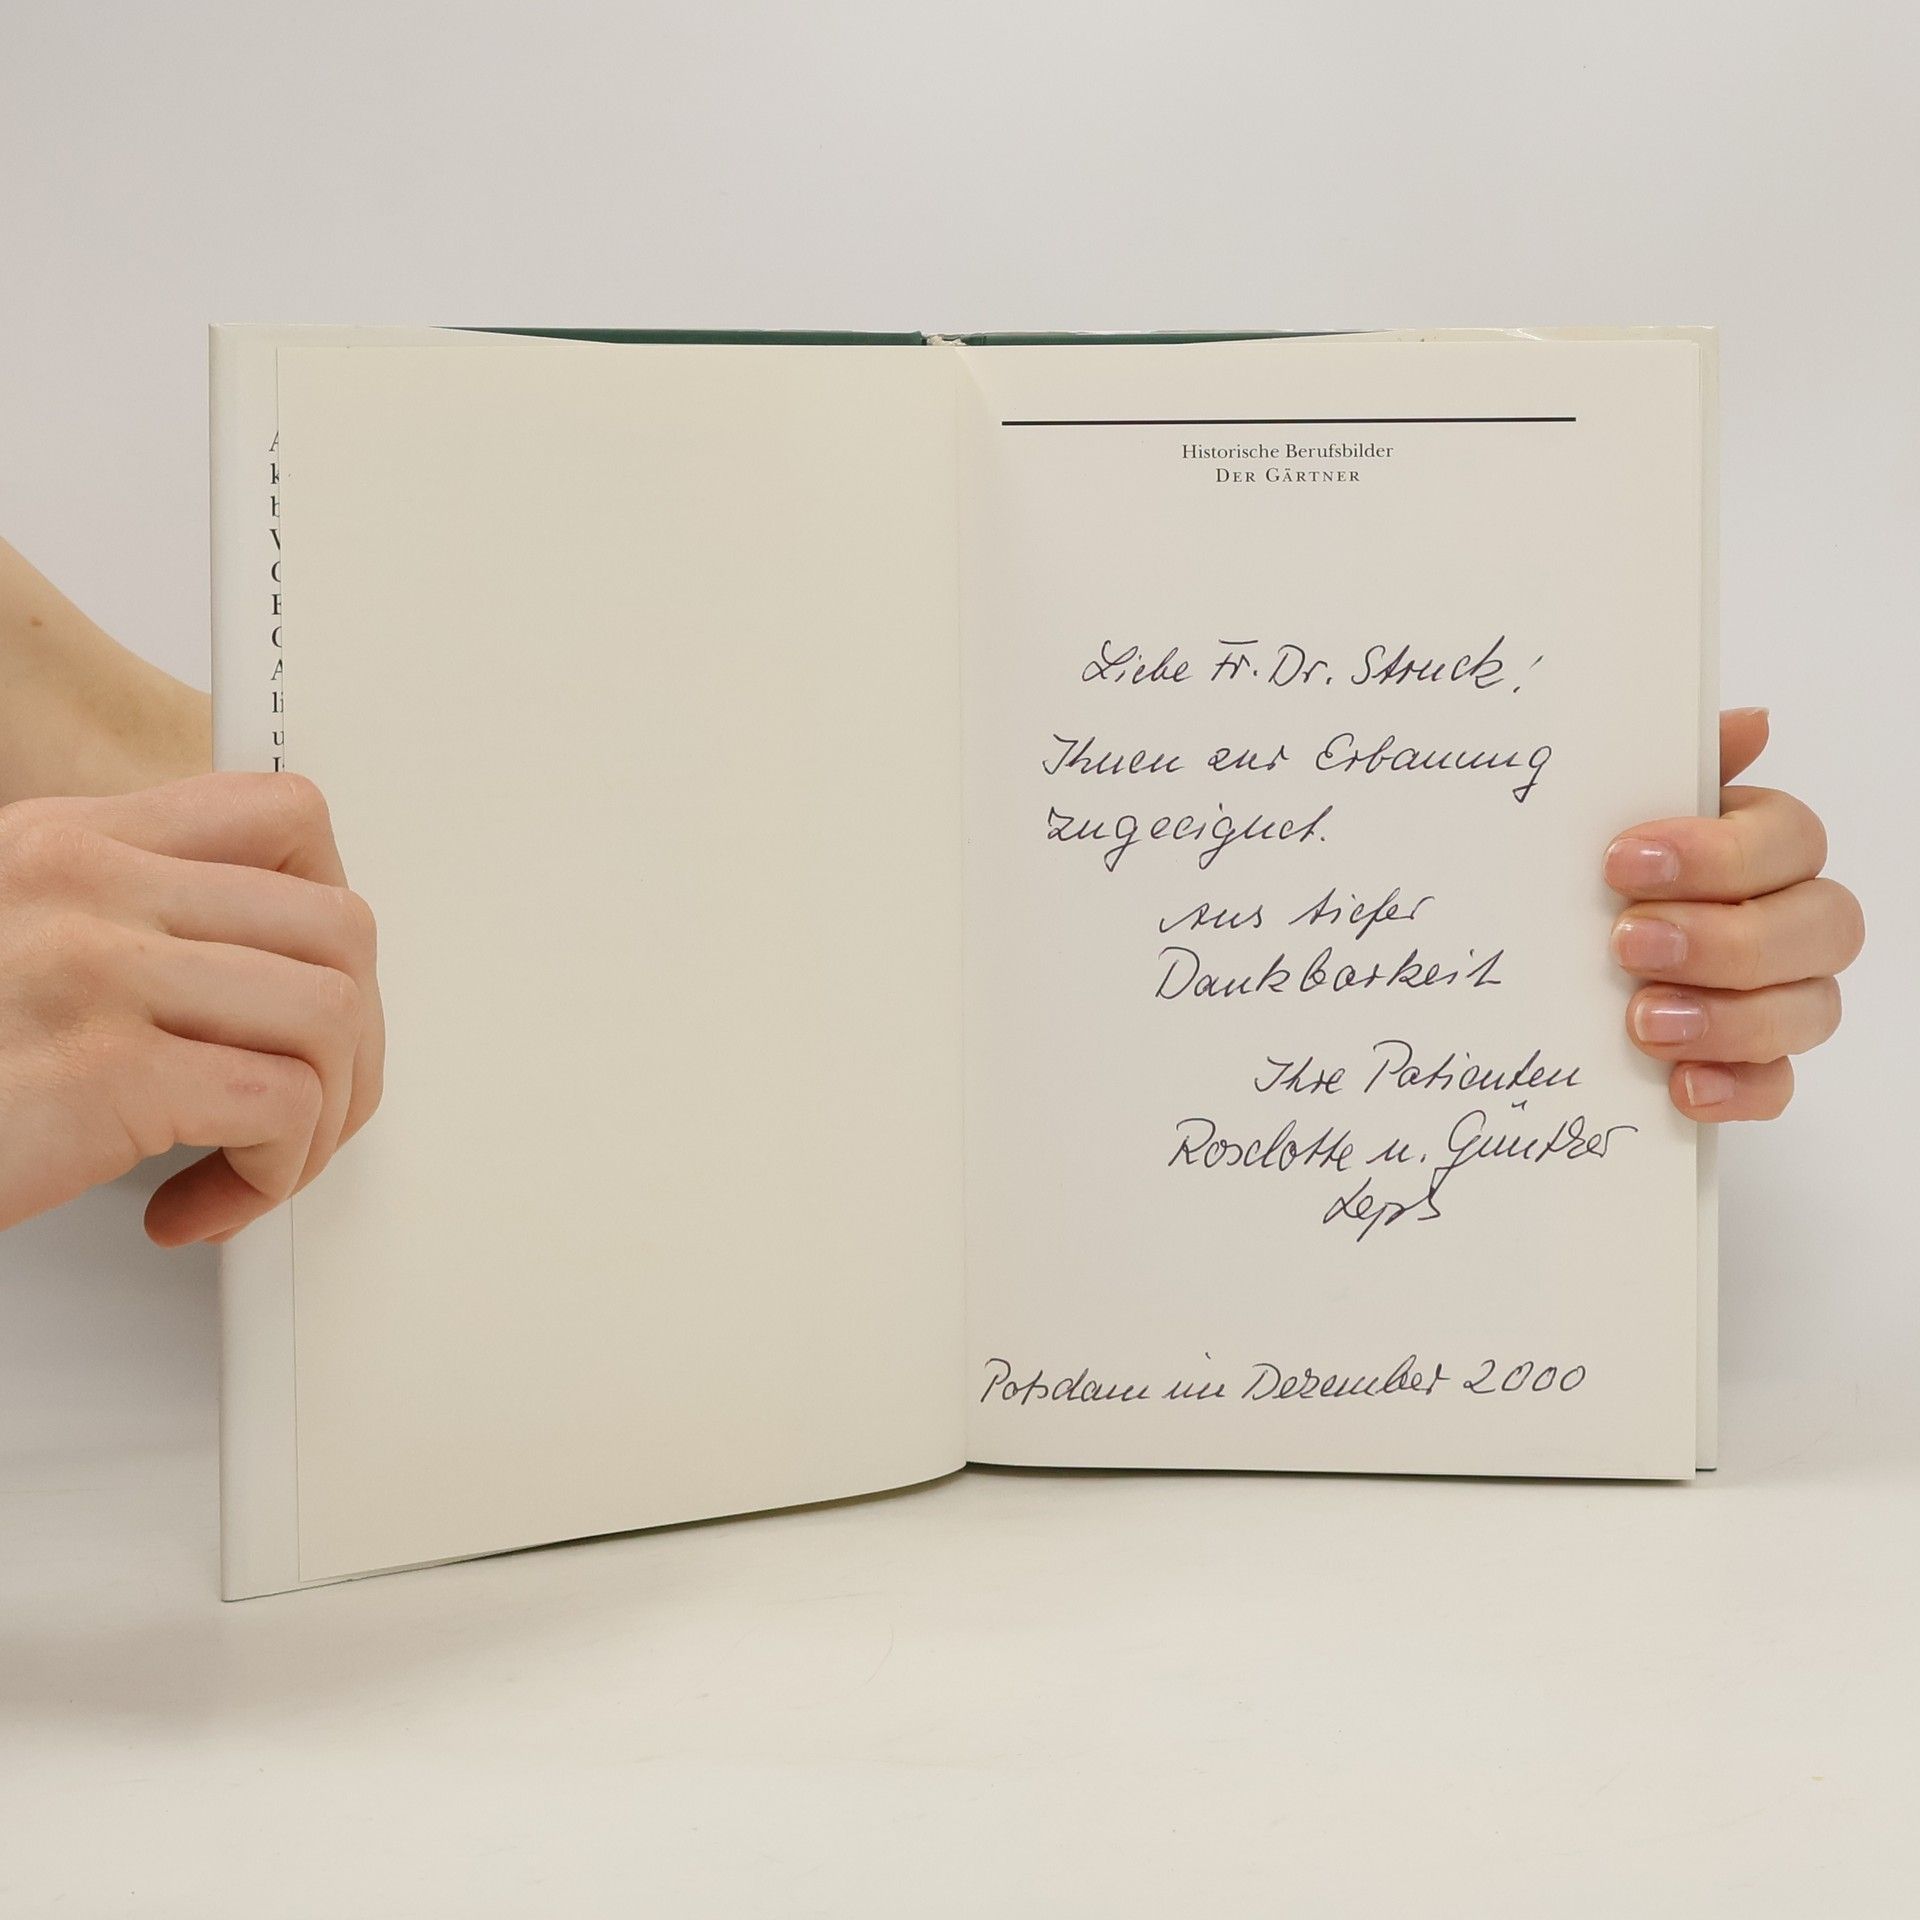 Historische Berufsbilder
DER GÄRTNER
Liebe Fr. Dr. Struck!
Ihnen zur Erbauung
zugeeignet.
Aus tiefer
Dankbarkeit
Ihre Patienten
Roselotte u. Günther
Potsdam im Dezember 2000